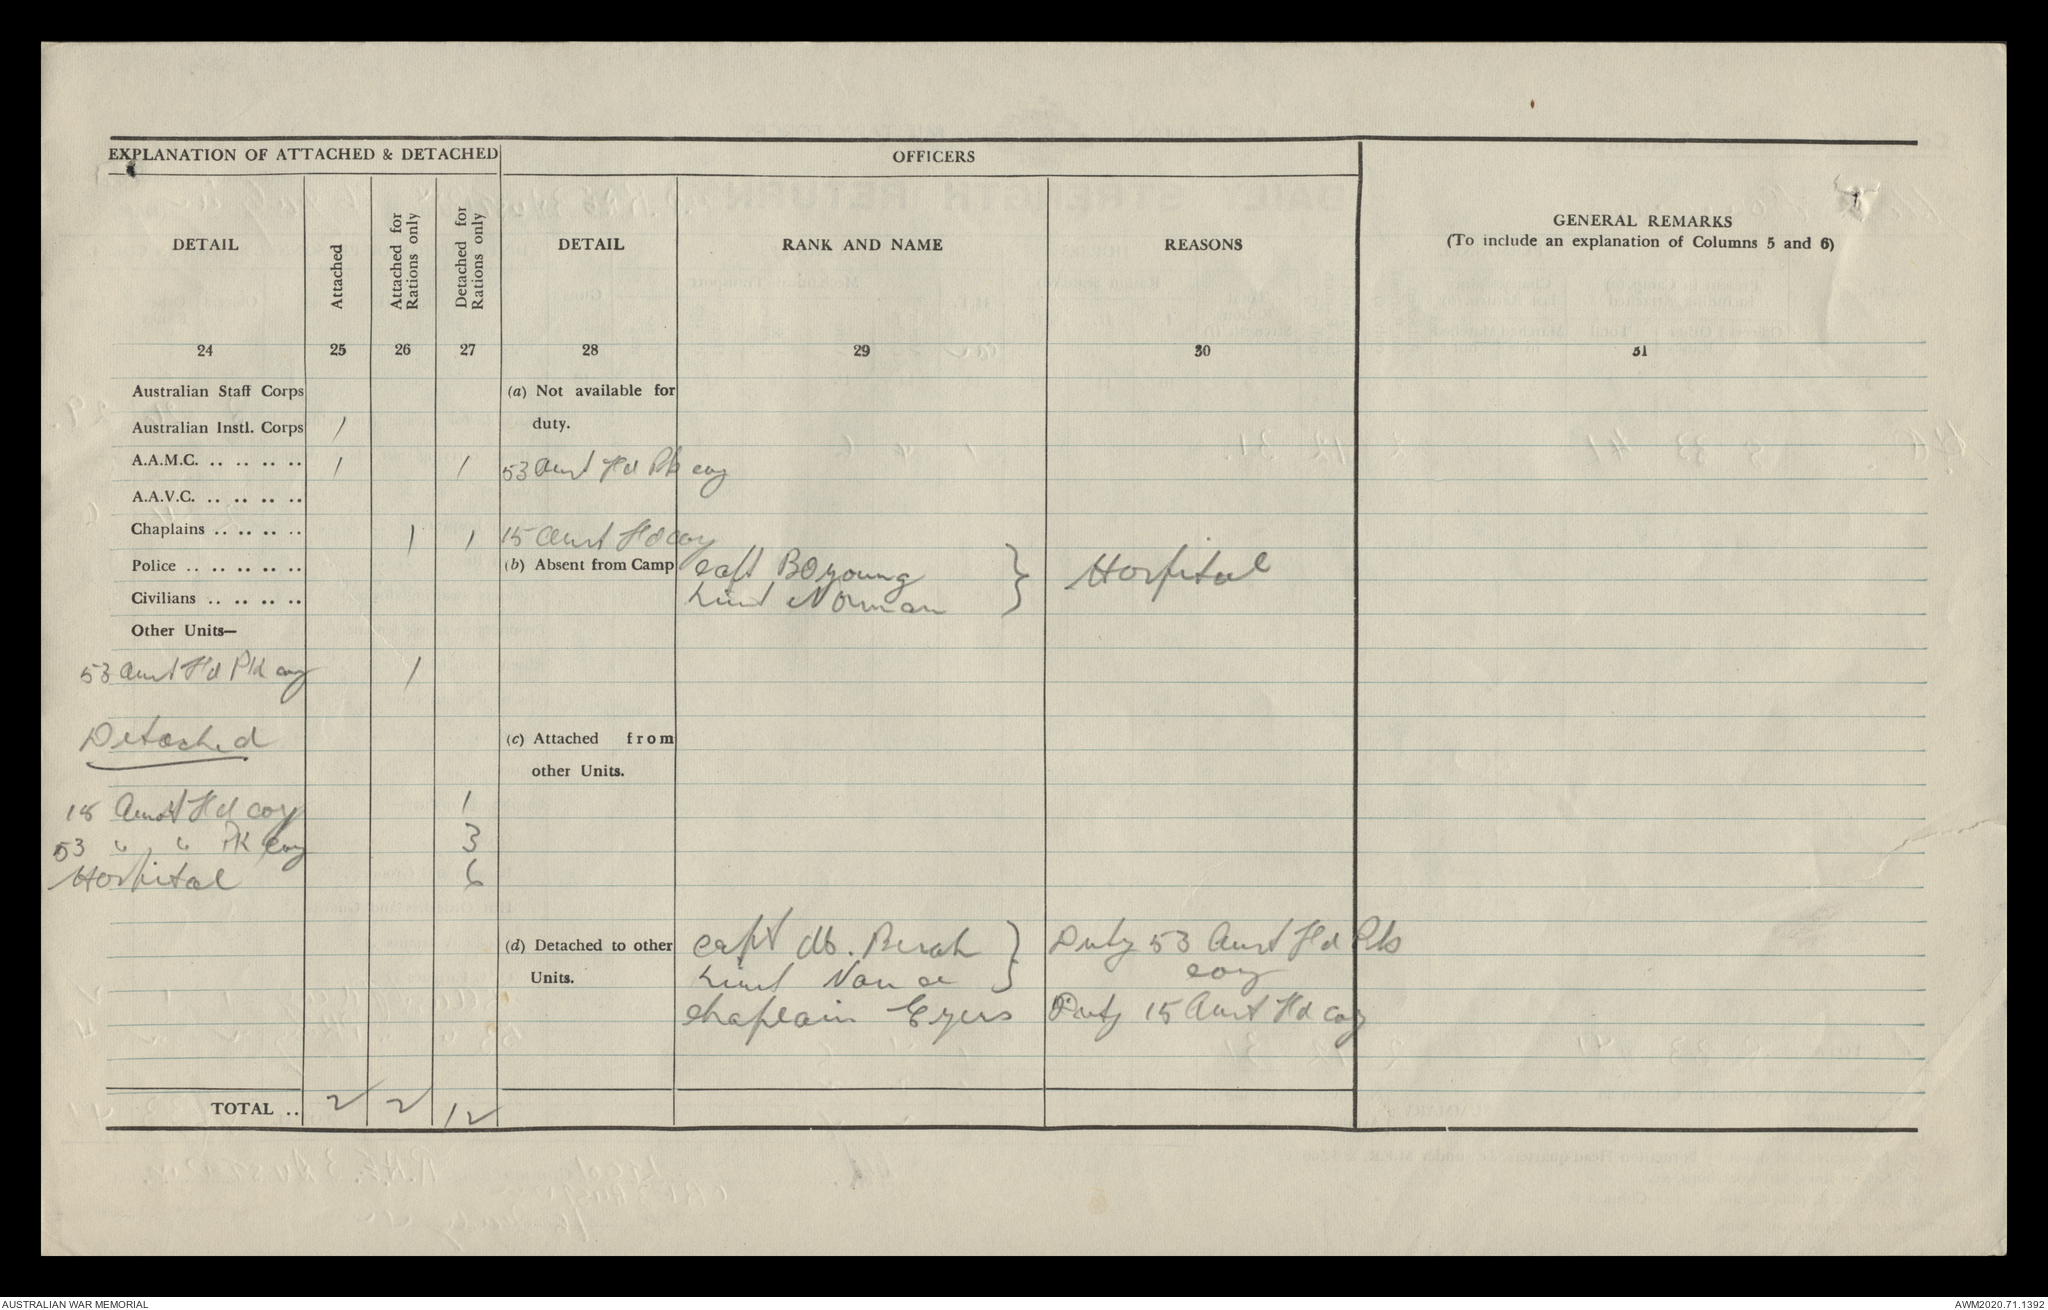 EXPLANATION OF ATTACHED & DETACHED
OFFICERS
GENERAL REMARKS
(To include an explanation of Columns 5 and 6)
DETAIL
Attached
Attached for Rations only
Detached for Rations only
DETAIL
RANK AND NAME
REASONS
24 25 26 27 28 29 30 31
Australian Staff Corps
(a) Not available for
duty.
Australian Instl. Corps 1
A.A.M.C. .. .. .. .. 1 1 53 Aust Fd Pk coy
A.A.V.C. .. .. .. ..
Chaplains .. .. .. .. 1 1 15 Aust Fd coy
Police .. .. .. .. .. (b) Absent from Camp Capt Young } Hospital
Civilians .. .. .. .. Lieut Norman
Other Units—
53 Aust Fd Pk coy 1
Detached
(c) Attached from
other Units.
15 Aust Fd coy 1
53 " " Pk coy 3
Hospital 6
(d) Detached to other Capt } Duty 53 Aust Fd Pk
Units. Lieut coy
Chaplain Eyers Duty 15 Aust Fd coy
TOTAL .. 2 2 12
AUSTRALIAN WAR MEMORIAL
AWM2020.71.1392